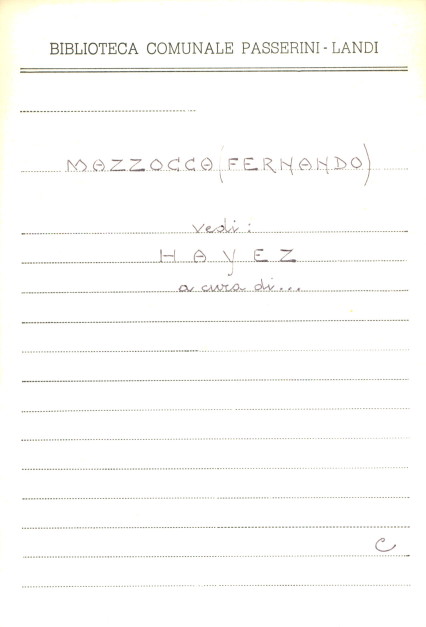 BIBLIOTECA COMUNALE PASSERINI - LANDI
MAZZOCCA (FERNANDO)
vedi:
HAYEZ
a cura di...
C